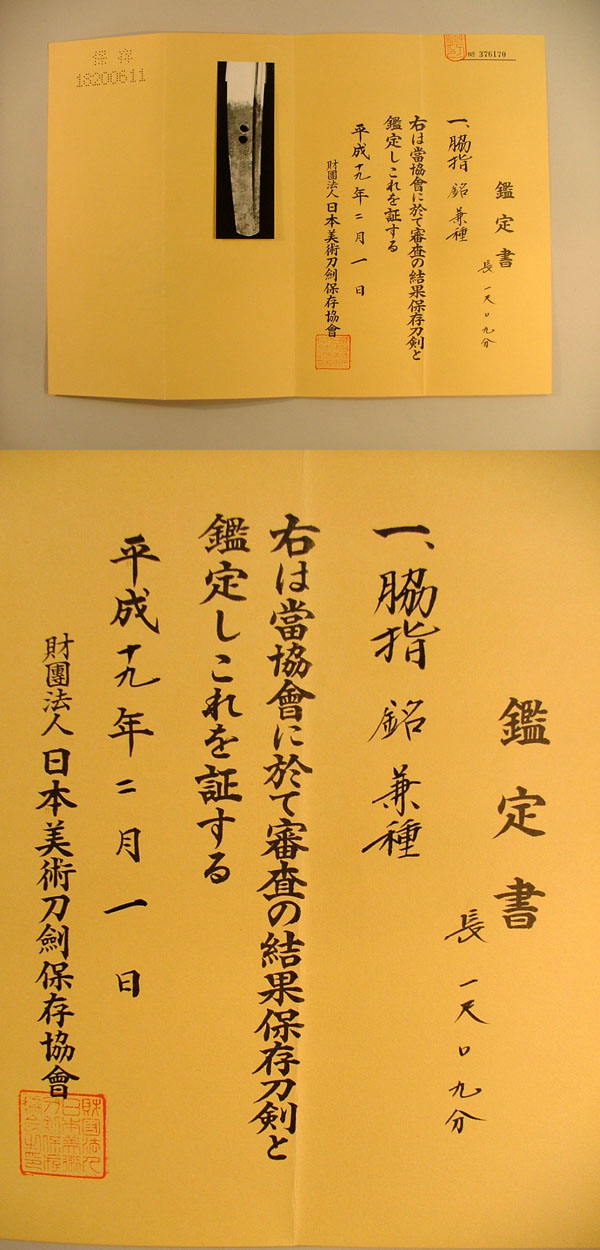 保存
18200611
№ 376170
鑑定書
長 一尺〇九分
一、脇指 銘 兼種
右は當協會に於て審査の結果保存刀剣と
鑑定しこれを証する
平成十九年二月一日
財團法人日本美術刀劍保存協會
鑑定書
長 一尺〇九分
一、脇指 銘 兼種
右は當協會に於て審査の結果保存刀剣と
鑑定しこれを証する
平成十九年二月一日
財團法人日本美術刀劍保存協會